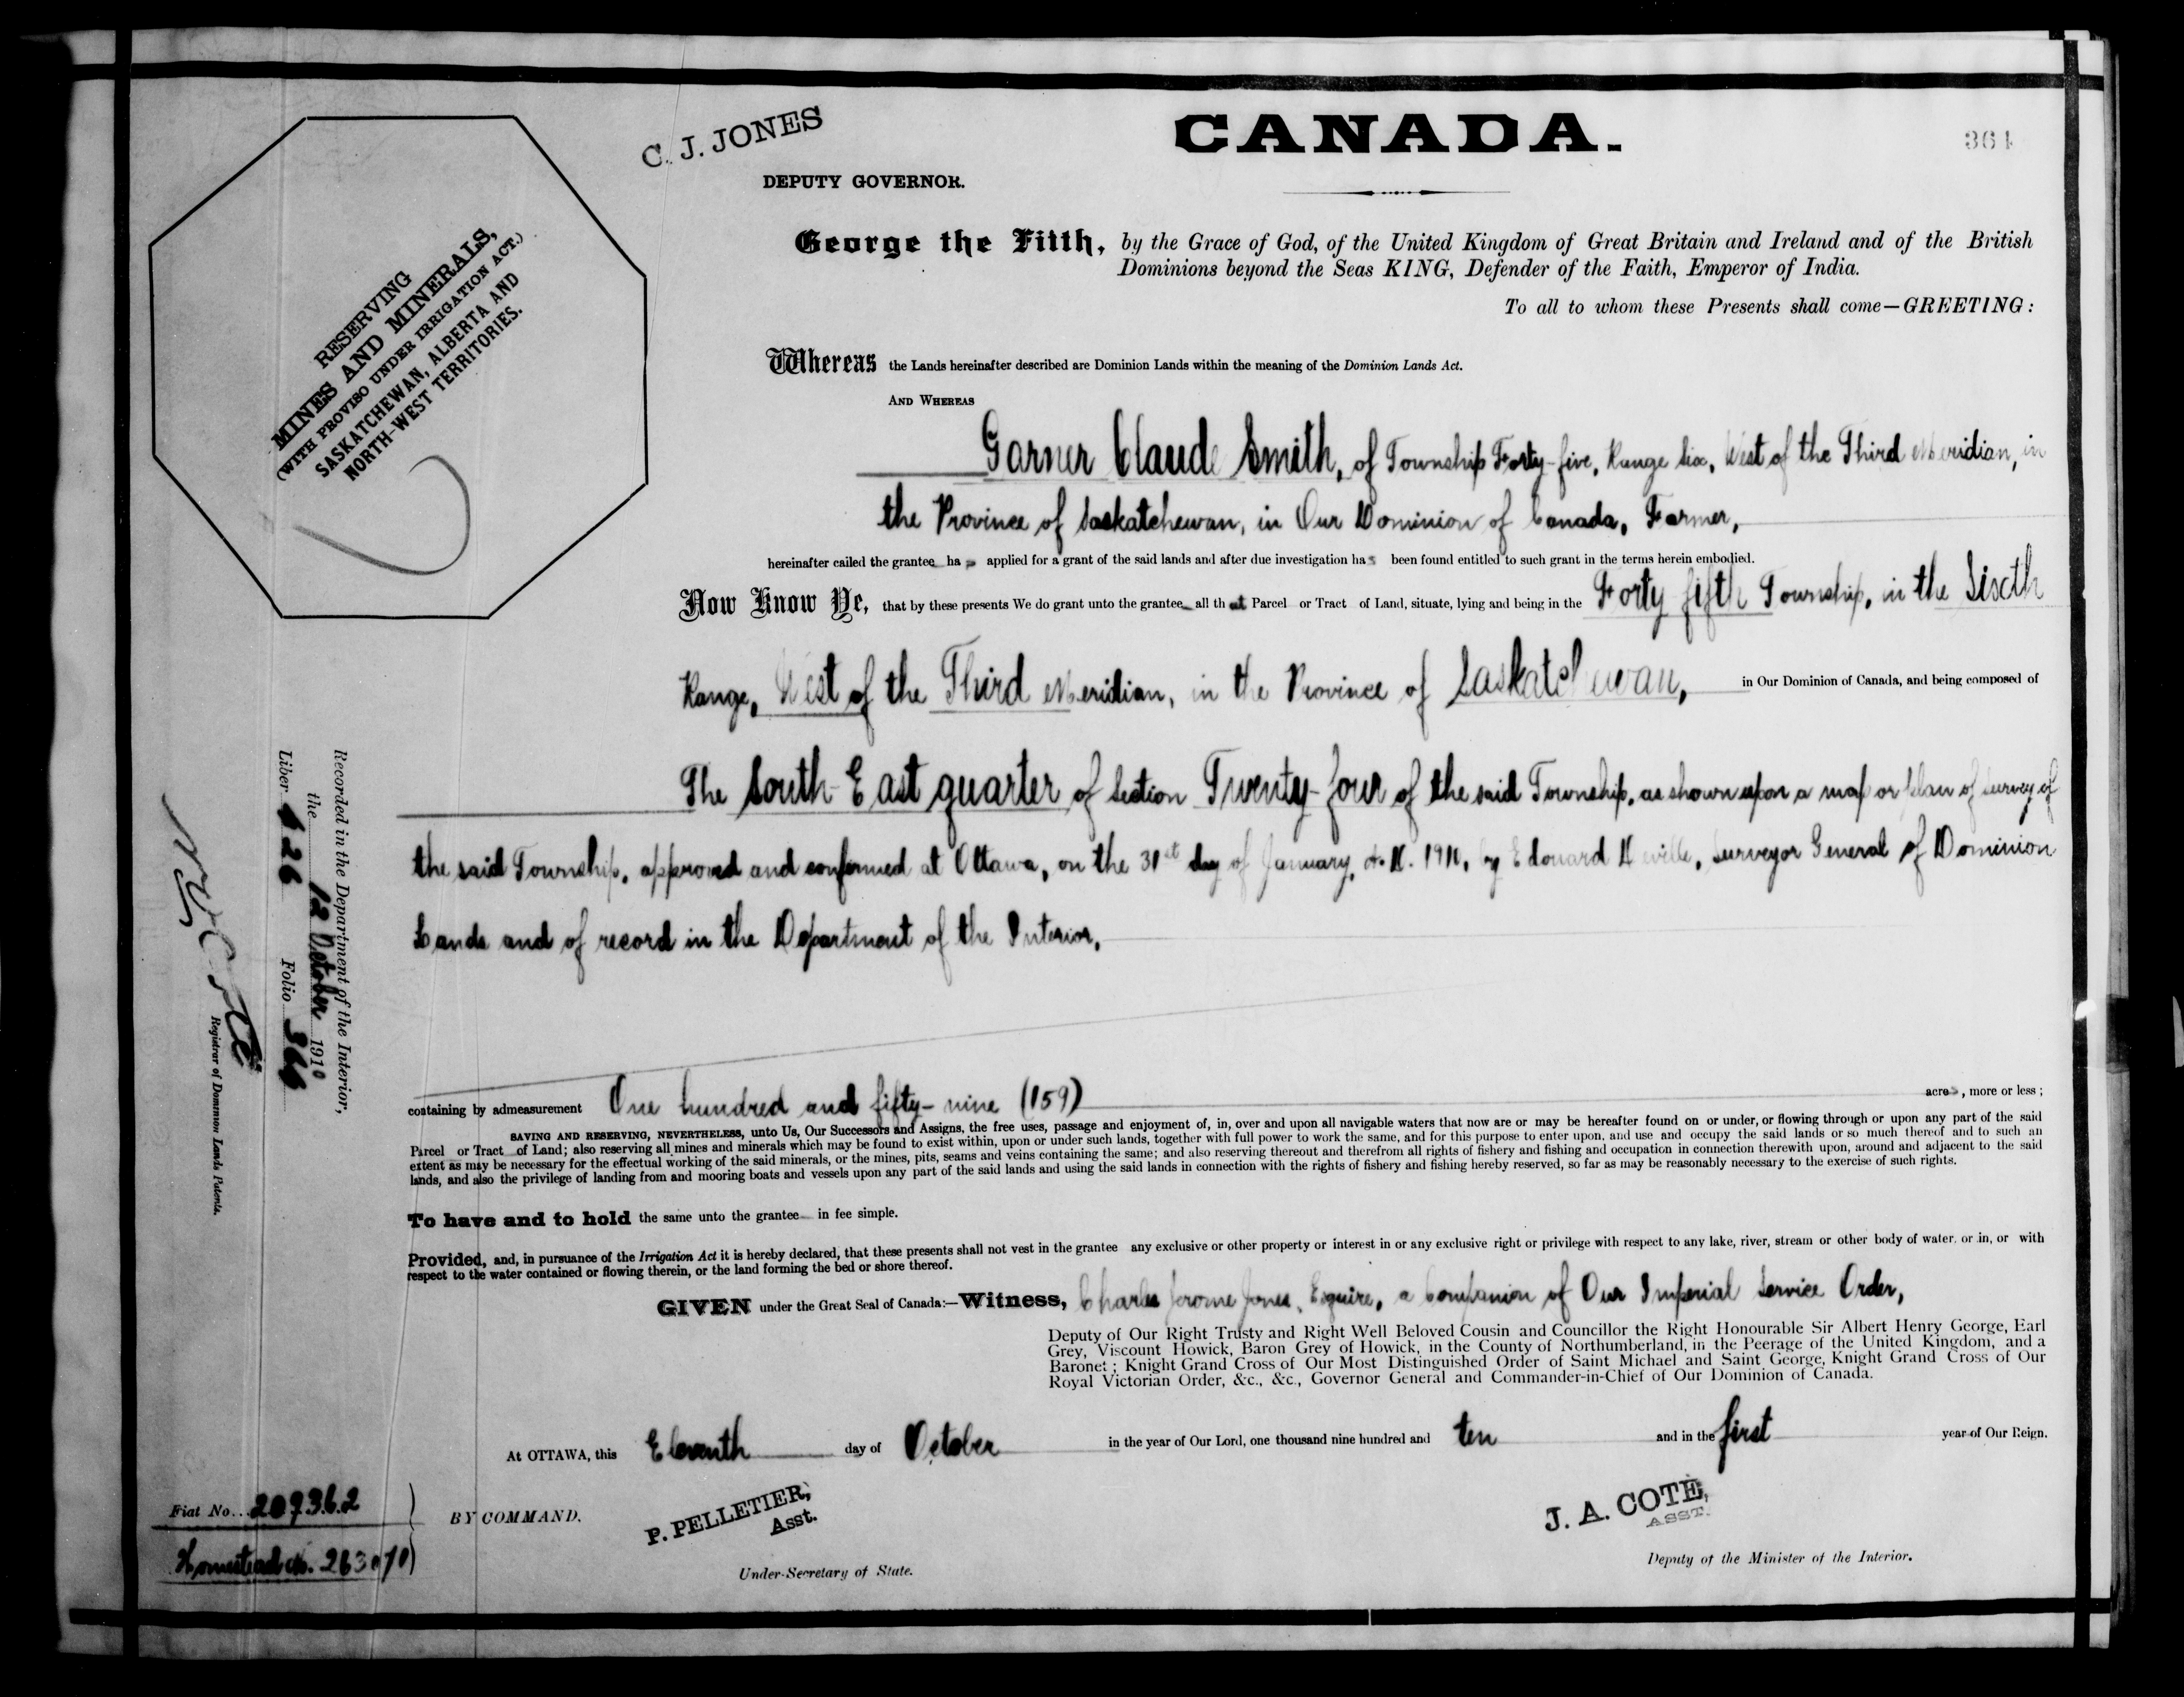 C. J. JONES
DEPUTY GOVERNOR.
CANADA.
364
RESERVING
MINES AND MINERALS,
(WITH PROVISO UNDER IRRIGATION ACT.)
SASKATCHEWAN, ALBERTA AND
NORTH-WEST TERRITORIES.
George the Fifth, by the Grace of God, of the United Kingdom of Great Britain and Ireland and of the British
Dominions beyond the Seas KING, Defender of the Faith, Emperor of India.
To all to whom these Presents shall come—GREETING:
Whereas the Lands hereinafter described are Dominion Lands within the meaning of the Dominion Lands Act.
AND WHEREAS
Garner Claude Smith, of Township Forty-five, Range Six, West of the Third Meridian, in
the Province of Saskatchewan, in Our Dominion of Canada, Farmer,
hereinafter called the grantee has applied for a grant of the said lands and after due investigation has been found entitled to such grant in the terms herein embodied.
Now Know Ye, that by these presents We do grant unto the grantee all that Parcel or Tract of Land, situate, lying and being in the Forty fifth Township, in the Sixth
Range, West of the Third Meridian, in the Province of Saskatchewan, in Our Dominion of Canada, and being composed of
The South East quarter of Section Twenty-four of the said Township, as shown upon a map or plan of survey of
the said Township, approved and confirmed at Ottawa, on the 31st day of January, A.D. 1910, by Edouard Deville, Surveyor General of Dominion
Lands and of record in the Department of the Interior,
containing by admeasurement One hundred and fifty-nine (159) acres, more or less;
SAVING AND RESERVING, NEVERTHELESS, unto Us, Our Successors and Assigns, the free uses, passage and enjoyment of, in, over and upon all navigable waters that now are or may be hereafter found on or under, or flowing through or upon any part of the said
Parcel or Tract of Land; also reserving all mines and minerals which may be found to exist within, upon or under such lands, together with full power to work the same, and for this purpose to enter upon, and use and occupy the said lands or so much thereof and to such an
extent as may be necessary for the effectual working of the said minerals, or the mines, pits, seams and veins containing the same; and also reserving thereout and therefrom all rights of fishery and fishing and occupation in connection therewith upon, around and adjacent to the said
lands, and also the privilege of landing from and mooring boats and vessels upon any part of the said lands and using the said lands in connection with the rights of fishery and fishing hereby reserved, so far as may be reasonably necessary to the exercise of such rights.
To have and to hold the same unto the grantee in fee simple.
Provided, and, in pursuance of the Irrigation Act it is hereby declared, that these presents shall not vest in the grantee any exclusive or other property or interest in or any exclusive right or privilege with respect to any lake, river, stream or other body of water, or in, or with
respect to the water contained or flowing therein, or the land forming the bed or shore thereof.
GIVEN under the Great Seal of Canada:—Witness, Charles Jerome Jones, Esquire, a Companion of Our Imperial Service Order,
Deputy of Our Right Trusty and Right Well Beloved Cousin and Councillor the Right Honourable Sir Albert Henry George, Earl
Grey, Viscount Howick, Baron Grey of Howick, in the County of Northumberland, in the Peerage of the United Kingdom, and a
Baronet; Knight Grand Cross of Our Most Distinguished Order of Saint Michael and Saint George, Knight Grand Cross of Our
Royal Victorian Order, &c., &c., Governor General and Commander-in-Chief of Our Dominion of Canada.
At OTTAWA, this Eleventh day of October in the year of Our Lord, one thousand nine hundred and ten and in the first year of Our Reign.
BY COMMAND.
P. PELLETIER,
Asst.
Under-Secretary of State.
J. A. COTE,
ASST.
Deputy of the Minister of the Interior.
Recorded in the Department of the Interior,
the 12 October 1910
Liber 426 Folio 364
Registrar of Dominion Lands Patents.
Fiat No. 207362
Homestead No. 263070